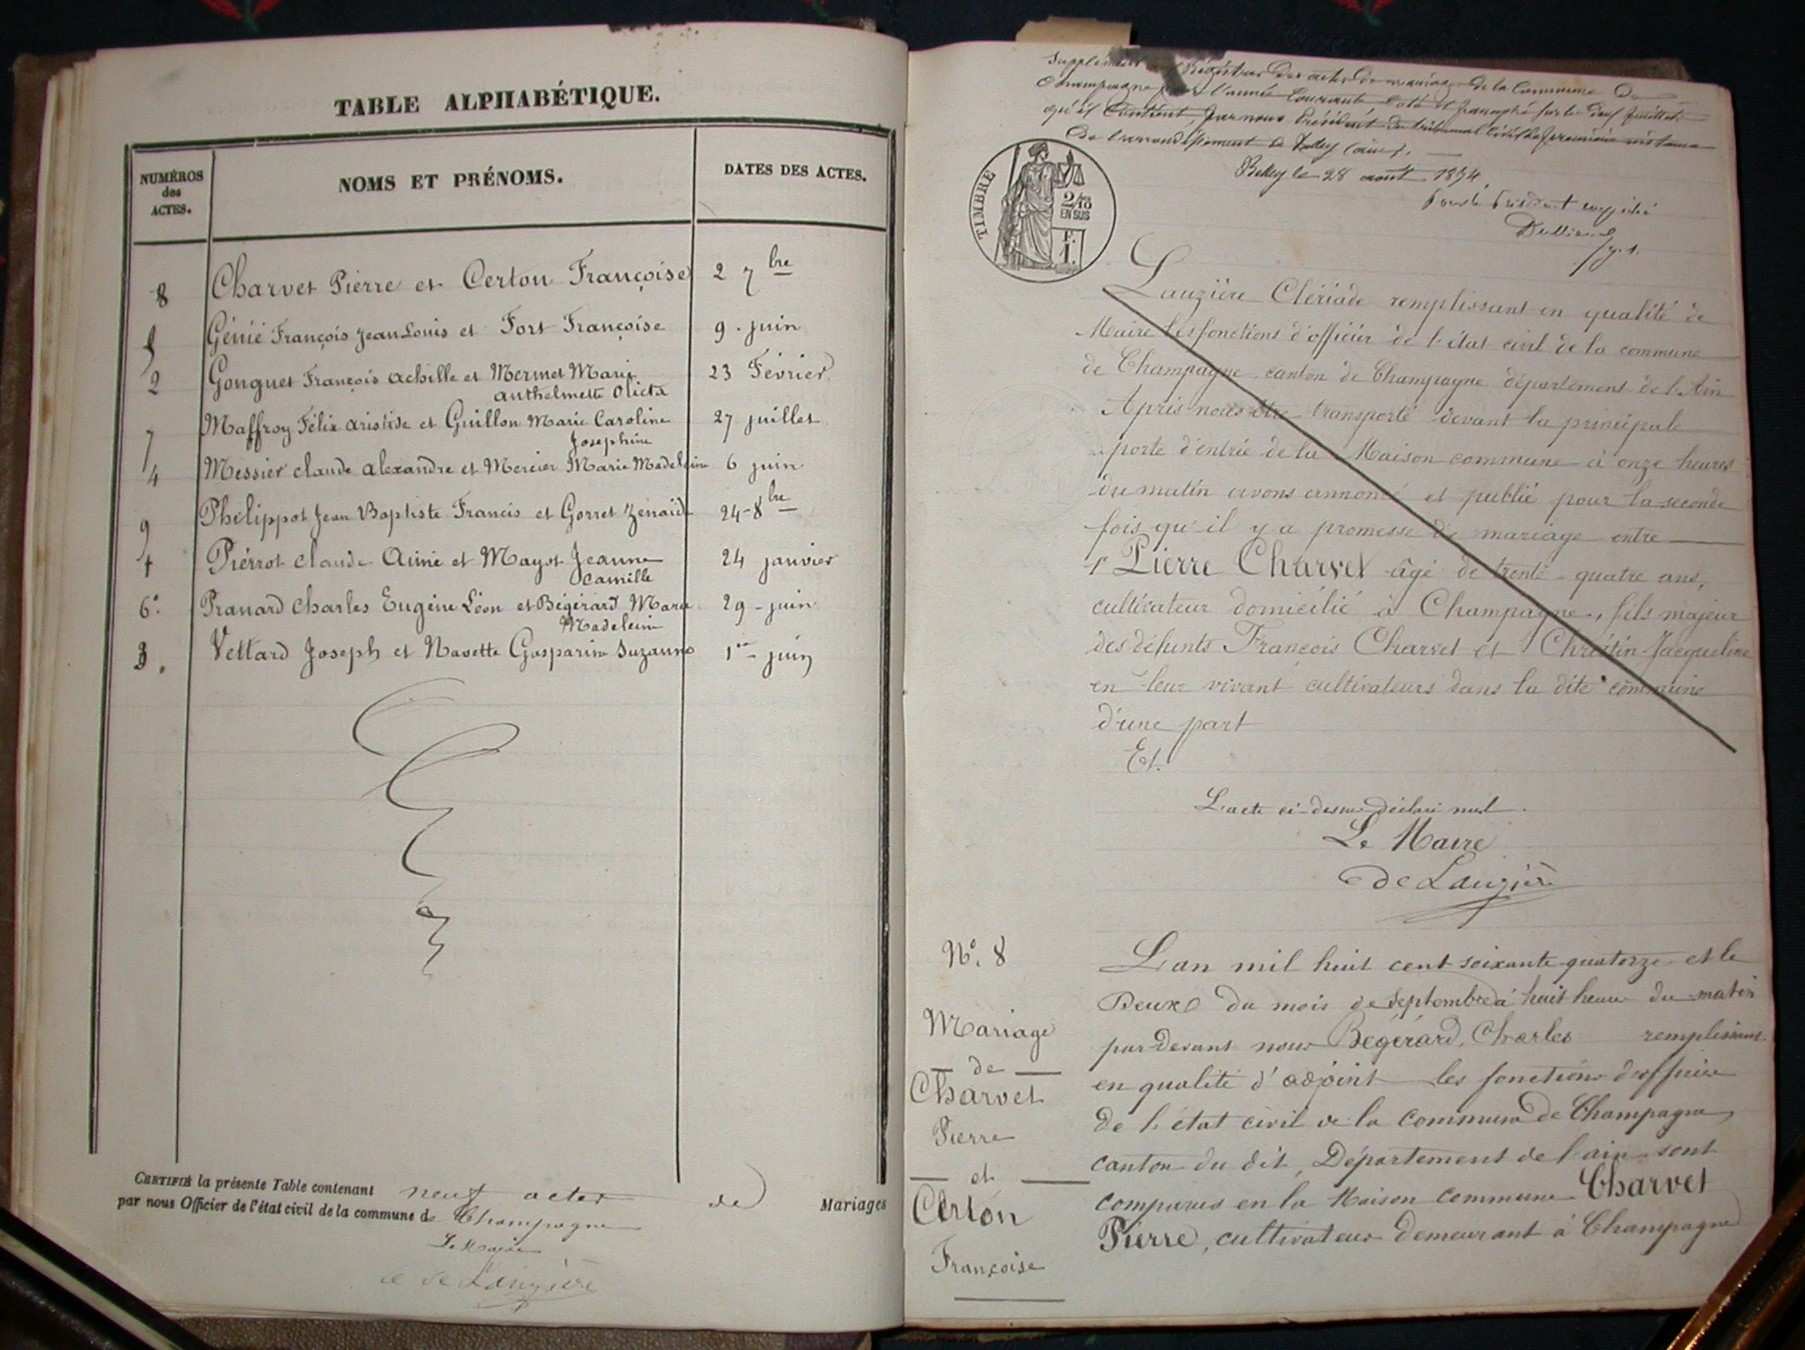 TABLE ALPHABÉTIQUE.
NUMÉROS
des
ACTES.
NOMS ET PRÉNOMS.
DATES DES ACTES.
8 Charvet Pierre et Certon Françoise 2 7bre
5 Génié François Jean Louis et Fort Françoise 9 - juin
2 Gonguet François achille et Mermet Marie 23 Février
anthelmette
7 Maffroy Félix aristide et Guillon Marie Caroline 27 juillet
Josephine
4 Messier claude alexandre et Mercier Marie Madeleine 6 juin
9 Philippot Jean Baptiste Francis et Gorret Zénaïde 24-8bre
1 Piérrot claude Aimé et Mayot Jeanne 24 janvier
Camille
6° Pranard Charles Eugène Léon et Bégérard Marie 29 - juin
Madeleine
3. Vettard Joseph et Navette Gasparine Suzanne 1er juin
CERTIFIÉ la présente Table contenant neuf actes de Mariages
par nous Officier de l'état civil de la commune de Champagne
Le Maire
de Lauzière
supplément Régistres des actes de mariage de la Commune De
Champagne l'année Courante Coté et paraphé sur les deux feuillets
qu'il Contient, par nous Président du tribunal Civil de première instance
de l'arrondissement de Belley (ain).
Belley le 28 aout 1874
Pour le Président empêché
TIMBRE
2/10
EN SUS
F.
1.
Lauzière Clériade remplissant en qualité de
Maire les fonctions d'officier de l'état civil de la commune
de Champagne canton de Champagne département de l'Ain
Après nous être transporté devant la principale
porte d'entrée de la Maison commune à onze heures
du matin avons annoncé et publié pour la seconde
fois qu'il y a promesse de mariage entre
1° Pierre Charvet âgé de trente-quatre ans,
cultivateur domicilié à Champagne, fils majeur
des défunts François Charvet et Chrístin Jacqueline
en leur vivant cultivateurs dans la dite commune
d'une part
Et.
L'acte ci-dessus déclaré nul.
Le Maire
de Lauzière
N°. 8
Mariage
de
Charvet
Pierre
et
Certon
Françoise
L'an mil huit cent soixante quatorze et le
Deux du mois de septembre à huit heures du matin
par devant nous Bégérard, Charles remplissant
en qualité d'adjoint les fonctions d'officier
de l'état civil de la commune de Champagne,
canton du dit, Département de l'ain sont
comparus en la Maison commune Charvet
Pierre, cultivateur demeurant à Champagne